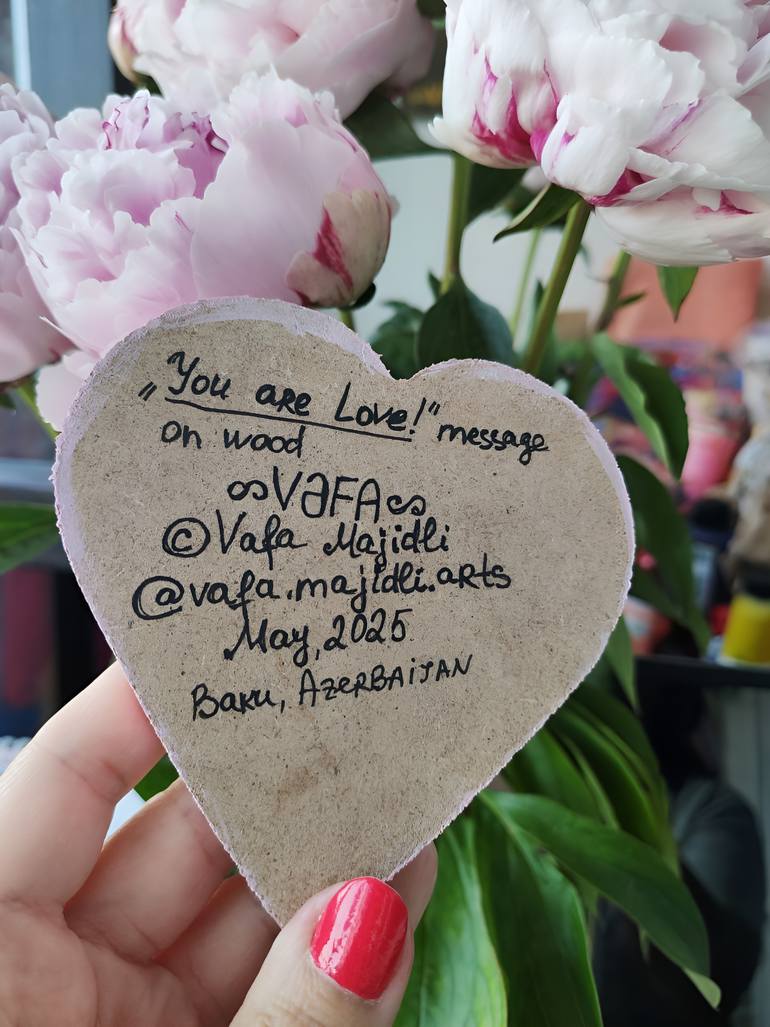 „You are Love!" message
on wood
∞VƏFA∞
©Vafa Majidli
@vafa.majidli.arts
May, 2025
Baku, AzerBAiJAN